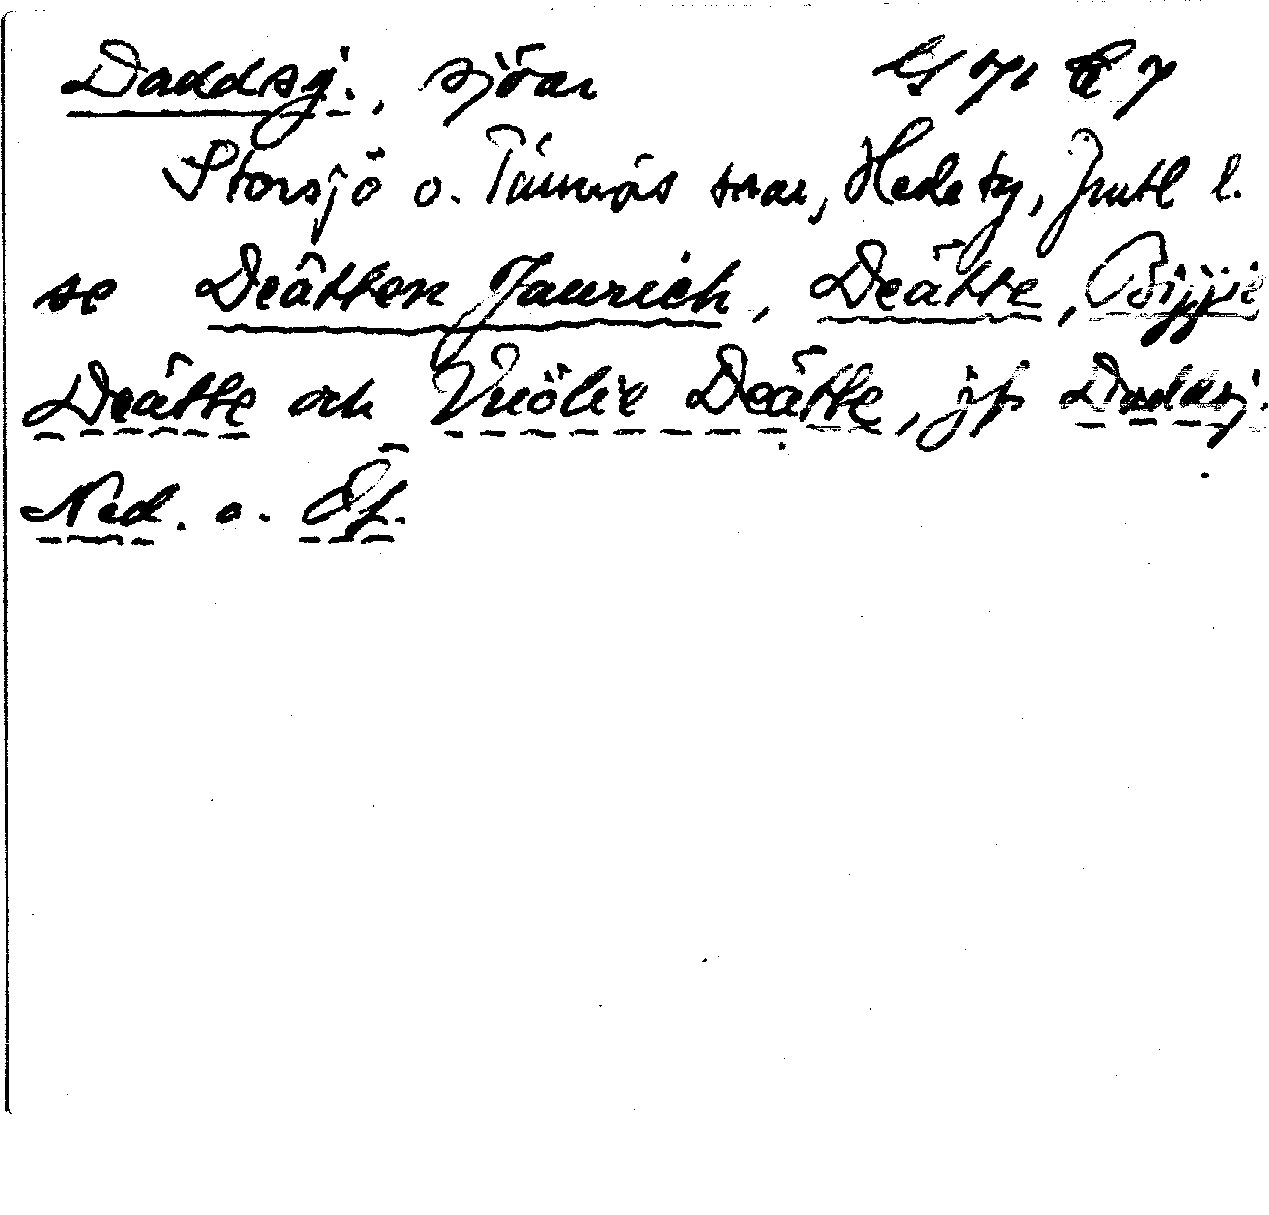 Daddsj., sjöar
Storsjö o. Tännäs snar, Hede tg, Jmtl l.
se Deätten Jaurieh, Deätte, Bijjie
Deätte och Vuölie Deätte, jfr Daddsj.
Ned. o. Öf.